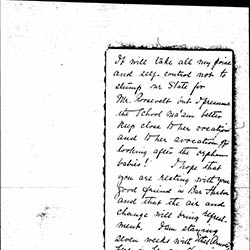 It will take all my poise
and self-control not to
stump our State for
Mr. Roosevelt but I presume
the School Ma'am better
keep close to her vocation
and to her avocation of
looking after the orphan
babies! I hope that
you are resting with your
good friend in Bar Harbor
and that the air and
change will bring refresh-
ment. I am staying
seven weeks with